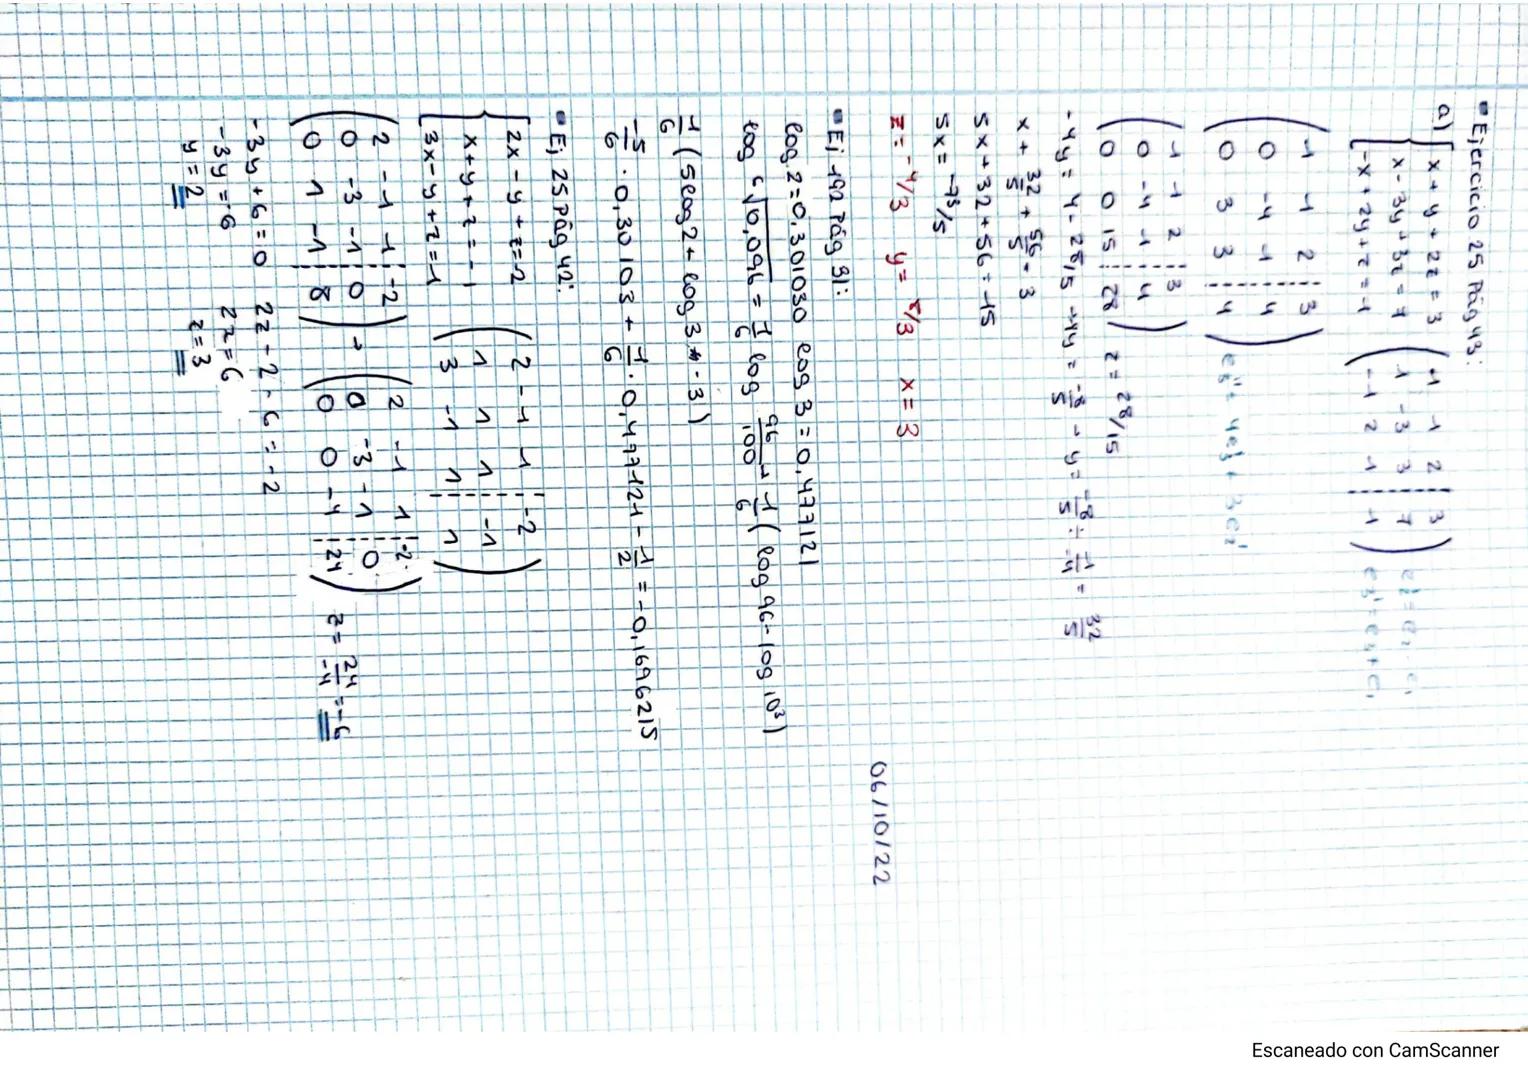 Ejercicio 25 Pág 43:
a) { x + y + 2z = 3
x - 3y + 3z = 7
-x + 2y + z = 1
( 1 1 2 3
1 -3 3 7
-1 2 1 1 )
( 1 1 2 3
0 -4 1 4
0 3 3 4 )
( 1 1 2 3
0 -4 1 4
0 0 15 28 )
z = 28/15
-4y = 4 - 28/15
-4y = -8/5 → y = -8/5 ÷ 1/4 = 32/5
x + 32/5 + 56/5 = 3
5x + 32 + 56 = 15
5x = -73/5
z = -4/3 y = 5/3 x = 3
06/10/22
Ej 192 Pág 31:
log 2 = 0,301030 log 3 = 0,477121
log ⁶√0,096 = 1/6 log 96/100 → 1/6 ( log 96 - log 10³ )
1/6 ( 5 log 2 + log 3 - 3 )
5/6 · 0,30103 + 1/6 · 0,477121 - 1/2 = -0,1696215
Ej 25 Pág 42:
{ 2x - y + z = -2
x + y + z = -1
3x - y + z = 1
( 2 -1 1 -2
1 1 1 -1
3 -1 1 1 )
( 2 -1 1 -2
0 -3 -1 0
0 1 -1 8 )
→
( 2 -1 1 -2
0 -3 -1 0
0 0 -4 24 )
z = 24/-4 = -6
-3y + 6 = 0
-3y = -6
y = 2
2z - 2 - 6 = -2
2z = 6
z = 3
Escaneado con CamScanner